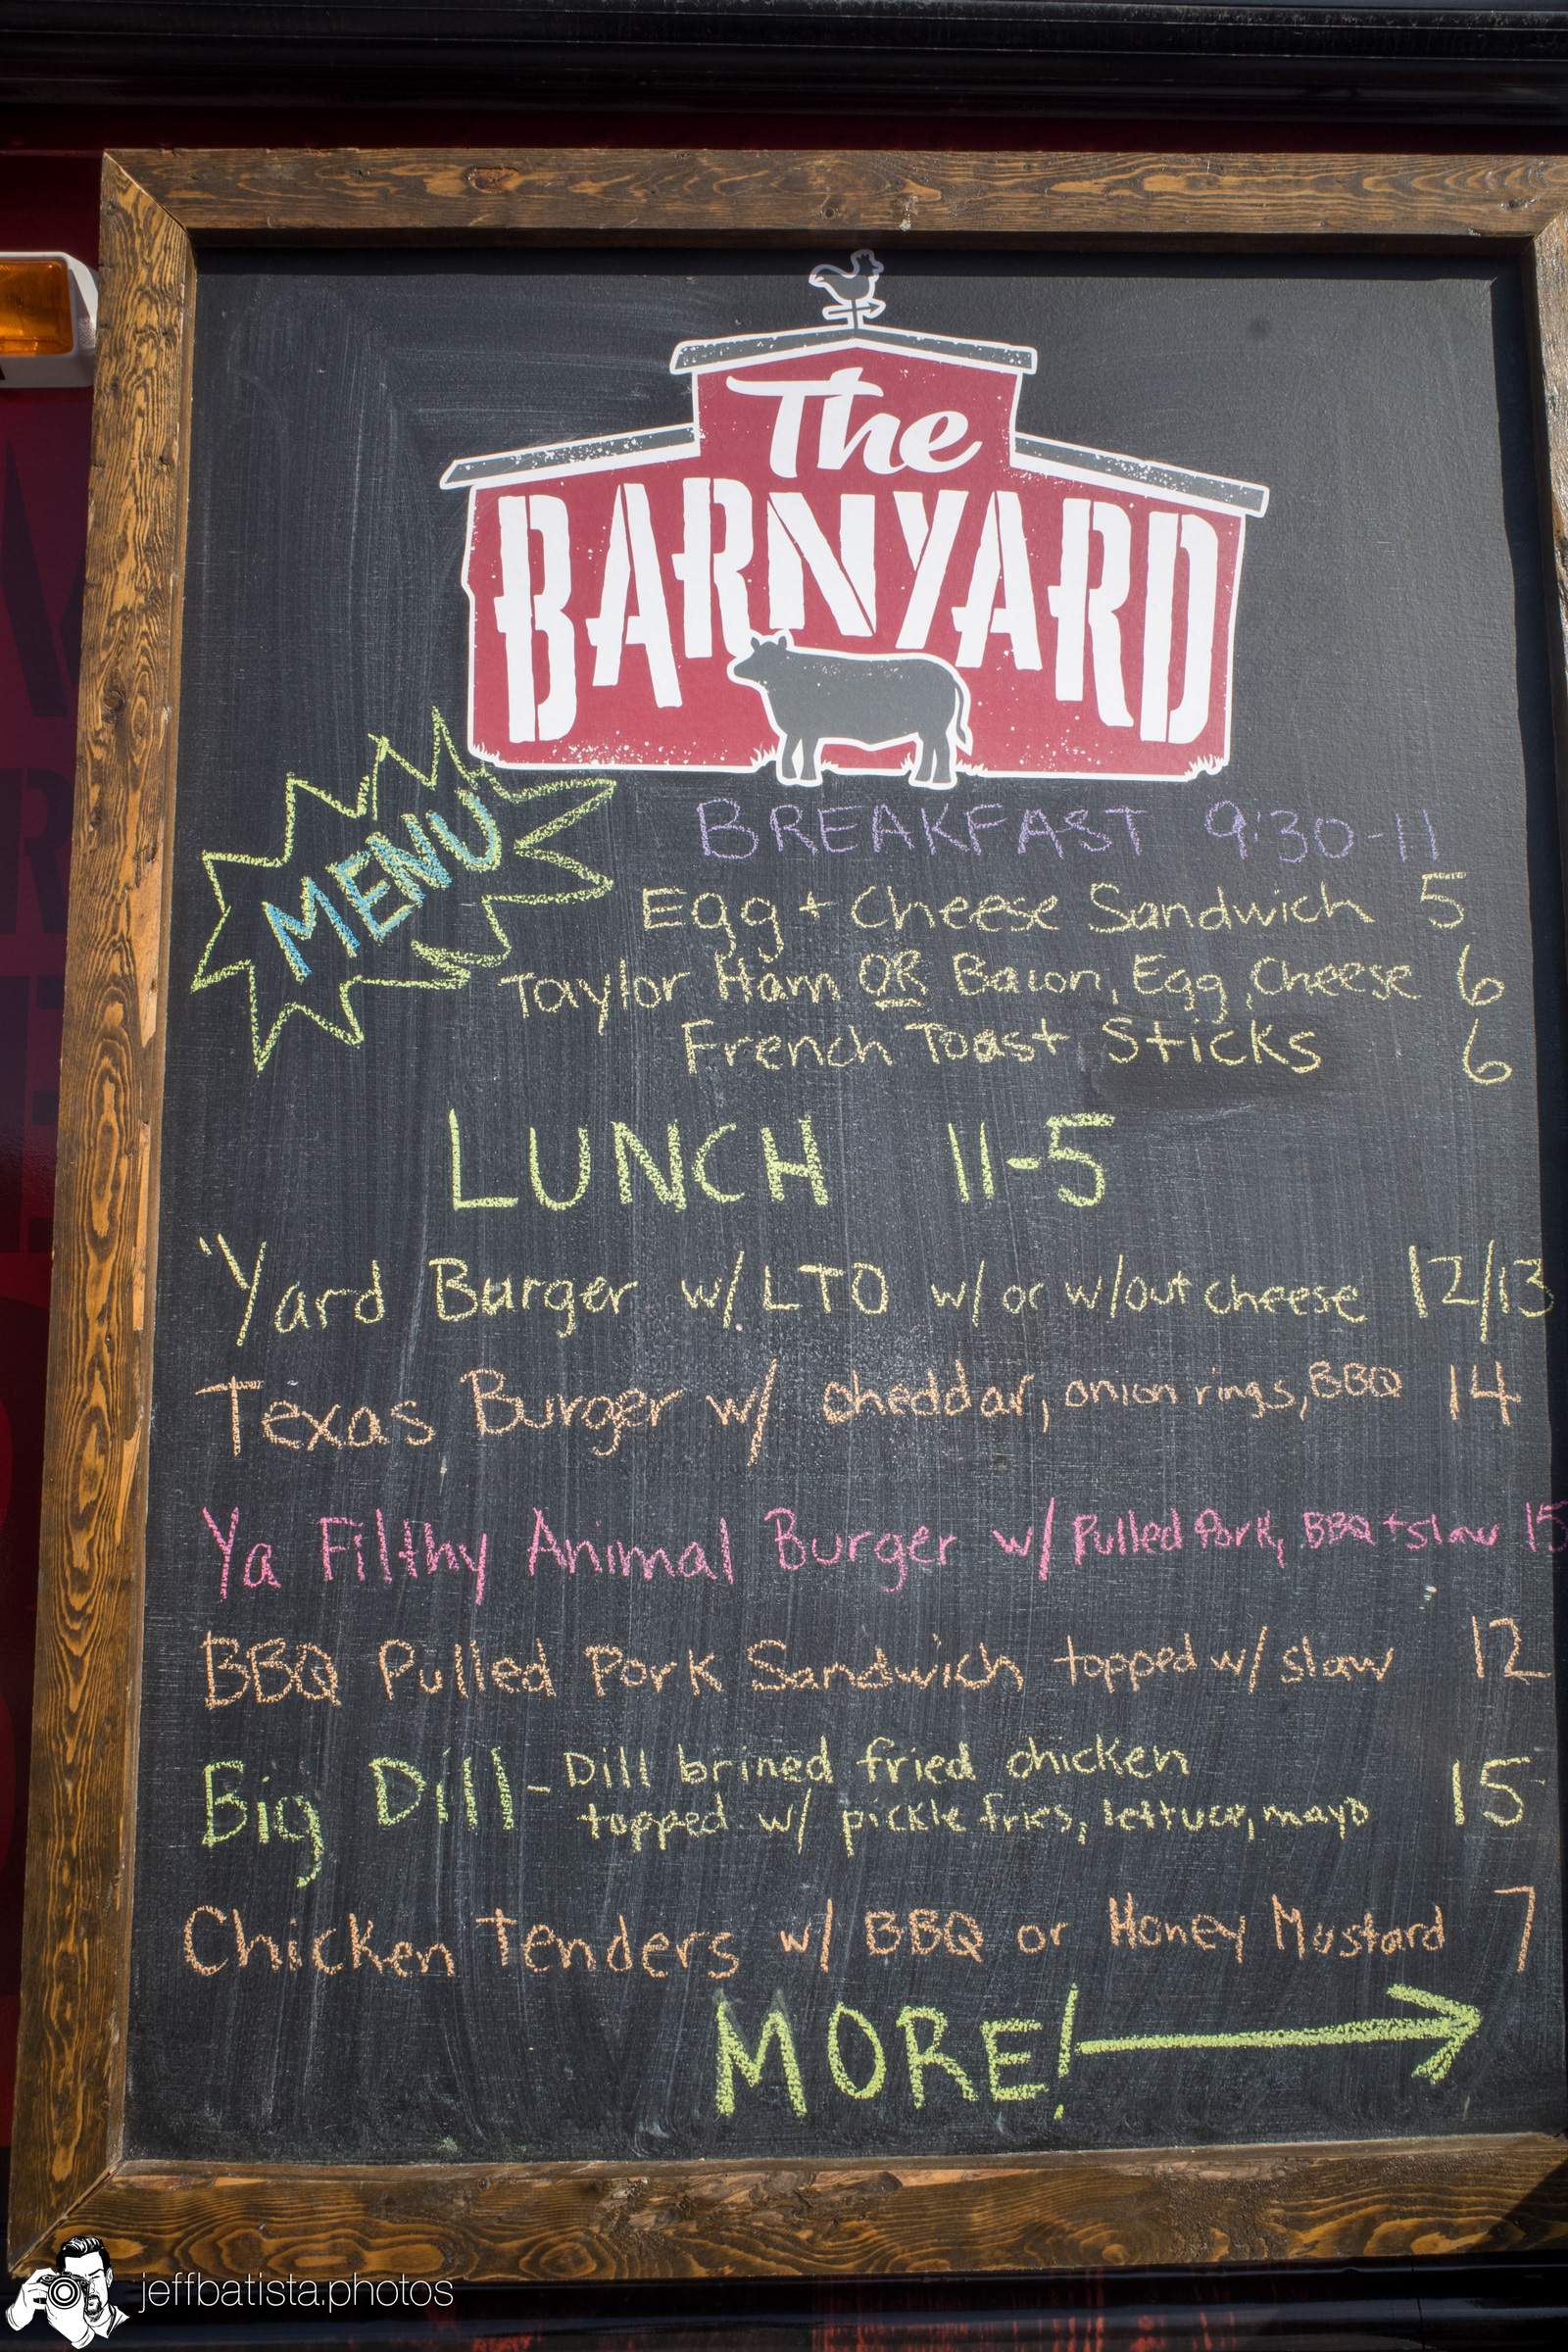 The
BARNYARD
MENU
BREAKFAST 9:30-11
Egg + Cheese Sandwich 5
Taylor Ham OR Bacon, Egg, Cheese 6
French Toast Sticks 6
LUNCH 11-5
'Yard Burger w/ LTO w/ or w/out cheese 12/13
Texas Burger w/ cheddar, onion rings, BBQ 14
Ya Filthy Animal Burger w/ Pulled Pork, BBQ + slaw 15
BBQ Pulled Pork Sandwich topped w/ slaw 12
Big Dill - Dill brined fried chicken
topped w/ pickle fries, lettuce, mayo 15
Chicken Tenders w/ BBQ or Honey Mustard 7
MORE!
jeffbatista.photos